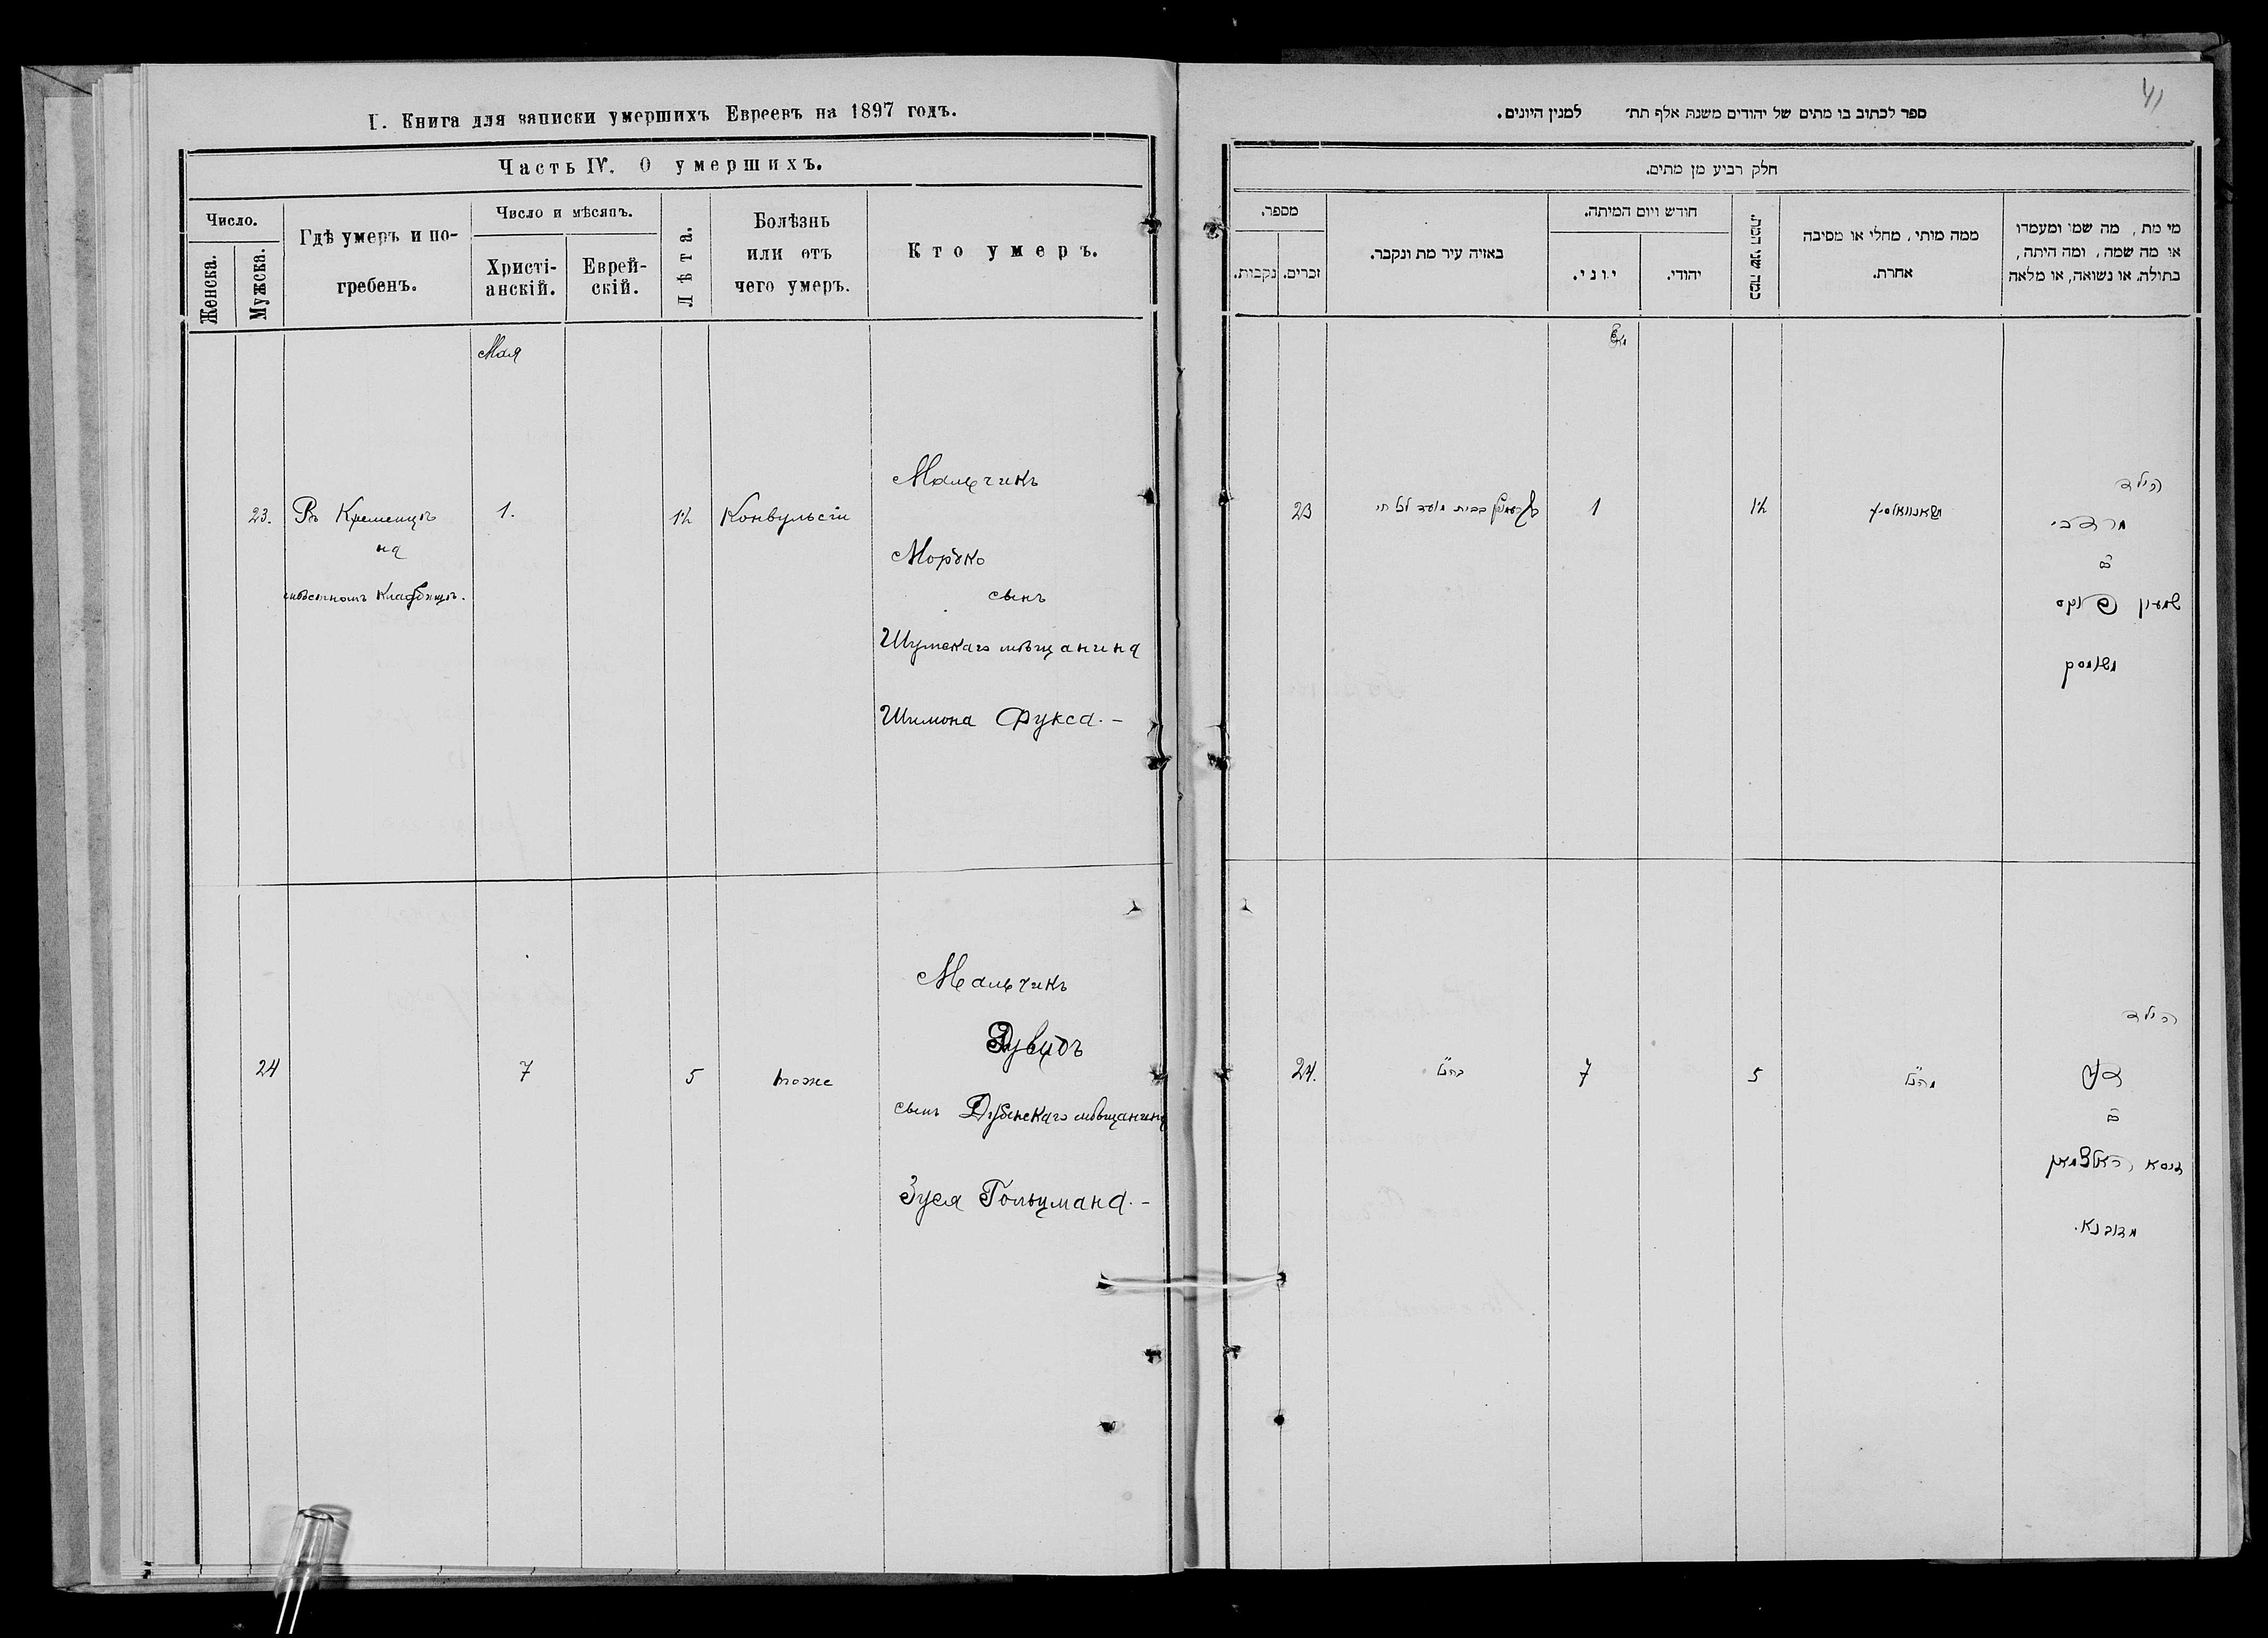 I. Книга для записки умершихъ Евреевъ на 1897 годъ.
Часть IV. О умершихъ.
Число.
Женска.
Мужска.
Гдѣ умеръ и по-
гребенъ.
Число и мѣсяцъ.
Христі-
анскій.
Еврей-
скій.
Лѣта.
Болѣзнь
или отъ
чего умеръ.
Кто умеръ.
Мая
23.
Въ Кременцѣ
на
мѣстномъ кладбищѣ.
1.
1½
Конвульсіи
Мальчикъ
Мордко
сынъ
Шумскаго мѣщанина
Шимона Фукса. –
24
7
5
тоже
Мальчикъ
Дувидъ
сынъ Дубенскаго мѣщанина
Зуся Гольцмана. –
41
ספר לכתוב בו מתים של יהודים משנת אלף תת׳ למנין היונים.
חלק רביע מן מתים.
מספר.
נקבות.
זכרים.
באיזה עיר מת ונקבר.
חודש ויום המיתה.
יוני.
יהודי.
כמה שני המת.
ממה מותי, מחלי או מסיבה
אחרת.
מי מת, מה שמו ומעמדו
או מה שמה, ומה היתה,
בתולה, או נשואה, או מלאה
23
בבית מועד לכל חי
1
1½
הילד
מרדכי
ב״ר
שמעון פוקס
משומסק
24.
כהנ״ל
7
5
מהנ״ל
הילד
דוד
ב״ר
זיסא האלצמאן
מדובנא.